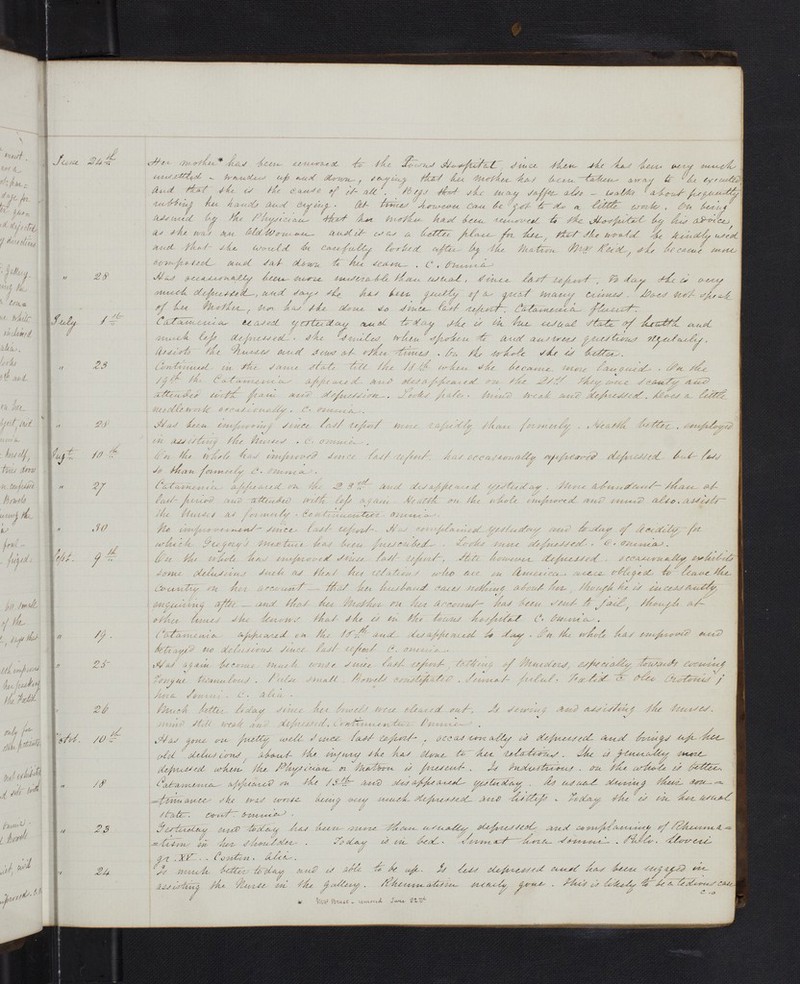 June 24th Her mother* has been removed to the Towns Hospital, since then she has been very much
unsettled - wanders up and down, saying that her mother has been taken away to be executed
and that she is the cause of it all. Begs that she may suffer also - walks about frequently
rubbing her hands and crying. At times however can be got to do a little work. On being
assured by the Physician that her mother had been removed to the Hospital by his advice
as she was an Old Woman and it was a better place for her, that she would be kindly used
and that she would be carefully looked after by the Matron Mrs Reid, she became more
composed and sat down to her seam. C. omnia.
" 28 Has occasionally been more miserable than usual, since last report. To day she is very
much depressed, and says she has been guilty of a great many crimes. Does not speak
of her Mother, nor has she done so since last report. Catamenia fluent.
July 1st Catamenia ceased yesterday and to day she is in her usual state of health and
much less depressed. She smiles when spoken to and answers questions regularly.
Assists the Nurses and sews at other times. On the whole she is better.
" 23 Continued in the same state till the 18th when she became more languid. On the
19th the Catamenia appeared and disappeared on the 21st. They were scanty and
attended with pain and depression. Looks pale. Mind weak and depressed. Does a little
needlework occasionally. C. omnia.
" 28 Has been improving since last report more rapidly than formerly. Health better. employed
in assisting the Nurses. C. omnia.
Augt. 10th On the whole has improved since last report. has occasionally appeared depressed but less
so than formerly C. omnia.
" 27 Catamenia appeared on the 23rd and disappeared yesterday. More abundant than at
last period and attended with less pain. Health on the whole improved and mind also. assists
the Nurses as formerly. Continuentur omnia.
" 30 No improvement since last report. Has complained yesterday and to day of Acidity for
which Gregory's mixture has been prescribed. Looks more depressed. C. omnia.
Sept. 9th On the whole has improved since last report. Still however depressed. occasionally exhibits
some delusions such as that her relations who are in America were obliged to leave the
country on her account - that her husband cares nothing about her, though he is incessantly
enquiring after - and that her Mother on her account has been sent to Jail, though at
other times she knows that she is in the towns hospital C. omnia.
" 19. Catamenia appeared on the 15th and disappeared to day. On the whole has improved and
betrayed no delusions since last report C. omnia.
" 25 Has again become much worse since last report, talking of Murders, especially towards evening
Tongue tremulous. Pulse small. Bowels constipated. Sumat pilul. Olei Crotonis
hora Somni. C. alia.
" 26 Much better today since her bowels were cleared out. Is sewing and assisting the Nurses.
mind still weak and depressed. Continuentur Omnia.
Octob. 10th Has gone on pretty well since last report; occasionally is depressed and brings up her
old delusions, about the injury she has done to her relations. She is generally more
depressed when the Physician or Matron is present. Is Industrious. on the whole is better
" 18 Catamenia appeared on the 13th and disappeared yesterday. As usual during their con-
-tinuance she was worse being very much depressed and listless. Today she is in her usual
state. cont omnia.
" 23 Yesterday and today has been more than usually depressed and complaining of Rheuma-
-tism in her shoulder. Today is in bed. Sumat hora somni. Pulv. Doveri
gr. XV. Contin. alia.
" 24 Is much better to day and is able to be up. Is less depressed and has been engaged in
assisting the Nurse in the gallery. Rheumatism nearly gone. This is likely to be a tedious case
C. o
* June 22nd